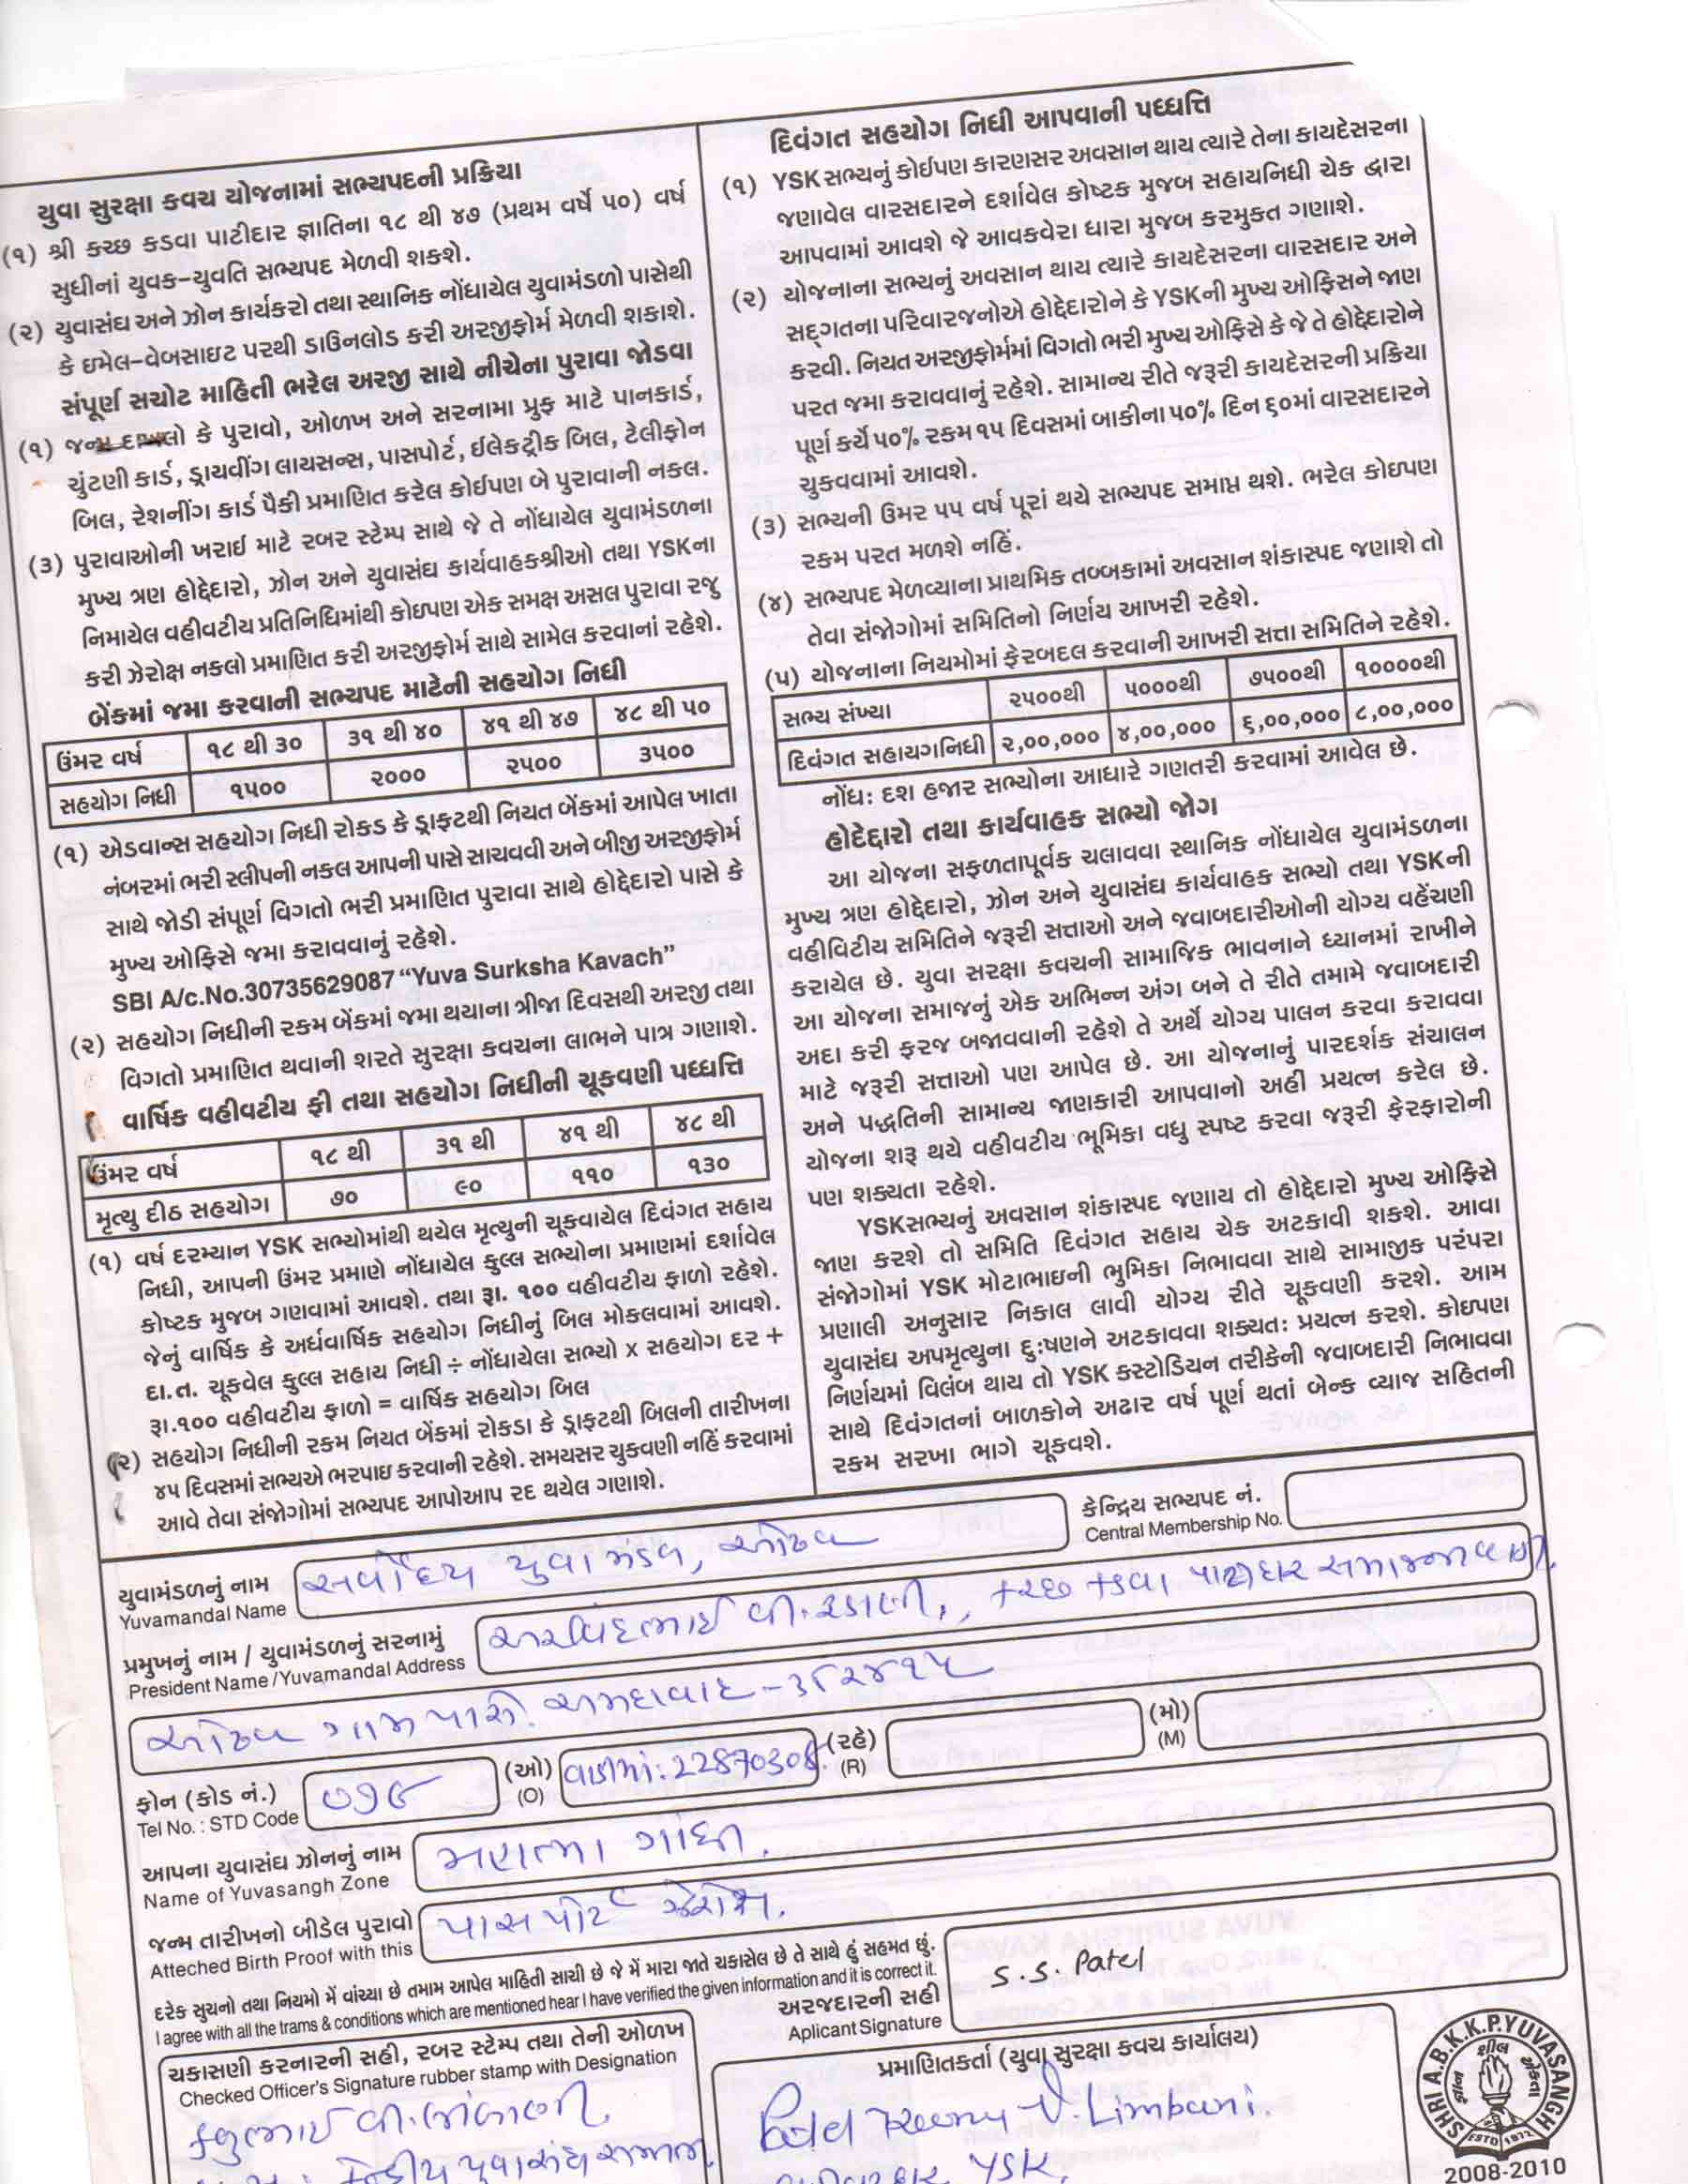 યુવા સુરક્ષા કવચ યોજનામાં સભ્યપદની પ્રક્રિયા
(૧) શ્રી કચ્છ કડવા પાટીદાર જ્ઞાતિના ૧૮ થી ૪૭ (પ્રથમ વર્ષે ૫૦) વર્ષ
સુધીનાં યુવક-યુવતિ સભ્યપદ મેળવી શકશે.
(૨) યુવાસંઘ અને ઝોન કાર્યકરો તથા સ્થાનિક નોંધાયેલ યુવામંડળો પાસેથી
કે ઇમેલ-વેબસાઇટ પરથી ડાઉનલોડ કરી અરજીફોર્મ મેળવી શકાશે.
સંપૂર્ણ સચોટ માહિતી ભરેલ અરજી સાથે નીચેના પુરાવા જોડવા
(૧) જન્મ દાખલો કે પુરાવો, ઓળખ અને સરનામા પ્રુફ માટે પાનકાર્ડ,
ચુંટણી કાર્ડ, ડ્રાયવીંગ લાયસન્સ, પાસપોર્ટ, ઈલેક્ટ્રીક બિલ, ટેલીફોન
બિલ, રેશનીંગ કાર્ડ પૈકી પ્રમાણિત કરેલ કોઈપણ બે પુરાવાની નકલ.
(૩) પુરાવાઓની ખરાઈ માટે રબર સ્ટેમ્પ સાથે જે તે નોંધાયેલ યુવામંડળના
મુખ્ય ત્રણ હોદ્દેદારો, ઝોન અને યુવાસંઘ કાર્યવાહકશ્રીઓ તથા YSKના
નિમાયેલ વહીવટીય પ્રતિનિધિમાંથી કોઇપણ એક સમક્ષ અસલ પુરાવા રજુ
કરી ઝેરોક્ષ નકલો પ્રમાણિત કરી અરજીફોર્મ સાથે સામેલ કરવાનાં રહેશે.
બેંકમાં જમા કરવાની સભ્યપદ માટેની સહયોગ નિધી
ઉંમર વર્ષ ૧૮ થી ૩૦ ૩૧ થી ૪૦ ૪૧ થી ૪૭ ૪૮ થી ૫૦
સહયોગ નિધી ૧૫૦૦ ૨૦૦૦ ૨૫૦૦ ૩૫૦૦
(૧) એડવાન્સ સહયોગ નિધી રોકડ કે ડ્રાફ્ટથી નિયત બેંકમાં આપેલ ખાતા
નંબરમાં ભરી સ્લીપની નકલ આપની પાસે સાચવવી અને બીજી અરજીફોર્મ
સાથે જોડી સંપૂર્ણ વિગતો ભરી પ્રમાણિત પુરાવા સાથે હોદ્દેદારો પાસે કે
મુખ્ય ઓફિસે જમા કરાવવાનું રહેશે.
SBI A/c.No.30735629087 “Yuva Surksha Kavach”
(૨) સહયોગ નિધીની રકમ બેંકમાં જમા થયાના ત્રીજા દિવસથી અરજી તથા
વિગતો પ્રમાણિત થવાની શરતે સુરક્ષા કવચના લાભને પાત્ર ગણાશે.
વાર્ષિક વહીવટીય ફી તથા સહયોગ નિધીની ચૂકવણી પધ્ધતિ
ઉંમર વર્ષ ૧૮ થી ૩૧ થી ૪૧ થી ૪૮ થી
મૃત્યુ દીઠ સહયોગ ૭૦ ૯૦ ૧૧૦ ૧૩૦
(૧) વર્ષ દરમ્યાન YSK સભ્યોમાંથી થયેલ મૃત્યુની ચૂકવાયેલ દિવંગત સહાય
નિધી, આપની ઉંમર પ્રમાણે નોંધાયેલ કુલ્લ સભ્યોના પ્રમાણમાં દર્શાવેલ
કોષ્ટક મુજબ ગણવામાં આવશે. તથા રૂા. ૧૦૦ વહીવટીય ફાળો રહેશે.
જેનું વાર્ષિક કે અર્ધવાર્ષિક સહયોગ નિધીનું બિલ મોકલવામાં આવશે.
દા.ત. ચૂકવેલ કુલ્લ સહાય નિધી ÷ નોંધાયેલા સભ્યો x સહયોગ દર +
રૂા.૧૦૦ વહીવટીય ફાળો = વાર્ષિક સહયોગ બિલ
(૨) સહયોગ નિધીની રકમ નિયત બેંકમાં રોકડા કે ડ્રાફટથી બિલની તારીખના
૪૫ દિવસમાં સભ્યએ ભરપાઇ કરવાની રહેશે. સમયસર ચુકવણી નહિં કરવામાં
આવે તેવા સંજોગોમાં સભ્યપદ આપોઆપ રદ થયેલ ગણાશે.
દિવંગત સહયોગ નિધી આપવાની પધ્ધતિ
(૧) YSK સભ્યનું કોઈપણ કારણસર અવસાન થાય ત્યારે તેના કાયદેસરના
જણાવેલ વારસદારને દર્શાવેલ કોષ્ટક મુજબ સહાયનિધી ચેક દ્વારા
આપવામાં આવશે જે આવકવેરા ધારા મુજબ કરમુકત ગણાશે.
(૨) યોજનાના સભ્યનું અવસાન થાય ત્યારે કાયદેસરના વારસદાર અને
સદ્ગતના પરિવારજનોએ હોદ્દેદારોને કે YSKની મુખ્ય ઓફિસને જાણ
કરવી. નિયત અરજીફોર્મમાં વિગતો ભરી મુખ્ય ઓફિસે કે જે તે હોદ્દેદારોને
પરત જમા કરાવવાનું રહેશે. સામાન્ય રીતે જરૂરી કાયદેસરની પ્રક્રિયા
પૂર્ણ કર્યે ૫૦% રકમ ૧૫ દિવસમાં બાકીના ૫૦% દિન ૬૦માં વારસદારને
ચુકવવામાં આવશે.
(૩) સભ્યની ઉમર ૫૫ વર્ષ પૂરાં થયે સભ્યપદ સમાપ્ત થશે. ભરેલ કોઇપણ
રકમ પરત મળશે નહિં.
(૪) સભ્યપદ મેળવ્યાના પ્રાથમિક તબ્બકામાં અવસાન શંકાસ્પદ જણાશે તો
તેવા સંજોગોમાં સમિતિનો નિર્ણય આખરી રહેશે.
(૫) યોજનાના નિયમોમાં ફેરબદલ કરવાની આખરી સત્તા સમિતિને રહેશે.
સભ્ય સંખ્યા ૨૫૦૦થી ૫૦૦૦થી ૭૫૦૦થી ૧૦૦૦૦થી
દિવંગત સહાયગનિધી ૨,૦૦,૦૦૦ ૪,૦૦,૦૦૦ ૬,૦૦,૦૦૦ ૮,૦૦,૦૦૦
નોંધઃ દશ હજાર સભ્યોના આધારે ગણતરી કરવામાં આવેલ છે.
હોદેદ્દારો તથા કાર્યવાહક સભ્યો જોગ
આ યોજના સફળતાપૂર્વક ચલાવવા સ્થાનિક નોંધાયેલ યુવામંડળના
મુખ્ય ત્રણ હોદ્દેદારો, ઝોન અને યુવાસંઘ કાર્યવાહક સભ્યો તથા YSKની
વહીવિટીય સમિતિને જરૂરી સત્તાઓ અને જવાબદારીઓની યોગ્ય વહેંચણી
કરાયેલ છે. યુવા સરક્ષા કવચની સામાજિક ભાવનાને ધ્યાનમાં રાખીને
આ યોજના સમાજનું એક અભિન્ન અંગ બને તે રીતે તમામે જવાબદારી
અદા કરી ફરજ બજાવવાની રહેશે તે અર્થે યોગ્ય પાલન કરવા કરાવવા
માટે જરૂરી સત્તાઓ પણ આપેલ છે. આ યોજનાનું પારદર્શક સંચાલન
અને પદ્ધતિની સામાન્ય જાણકારી આપવાનો અહીં પ્રયત્ન કરેલ છે.
યોજના શરૂ થયે વહીવટીય ભૂમિકા વધુ સ્પષ્ટ કરવા જરૂરી ફેરફારોની
પણ શક્યતા રહેશે.
YSKસભ્યનું અવસાન શંકાસ્પદ જણાય તો હોદ્દેદારો મુખ્ય ઓફિસે
જાણ કરશે તો સમિતિ દિવંગત સહાય ચેક અટકાવી શકશે. આવા
સંજોગોમાં YSK મોટાભાઇની ભુમિકા નિભાવવા સાથે સામાજીક પરંપરા
પ્રણાલી અનુસાર નિકાલ લાવી યોગ્ય રીતે ચૂકવણી કરશે. આમ
યુવાસંઘ અપમૃત્યુના દુઃષણને અટકાવવા શક્યતઃ પ્રયત્ન કરશે. કોઇપણ
નિર્ણયમાં વિલંબ થાય તો YSK કસ્ટોડિયન તરીકેની જવાબદારી નિભાવવા
સાથે દિવંગતનાં બાળકોને અઢાર વર્ષ પૂર્ણ થતાં બેન્ક વ્યાજ સહિતની
રકમ સરખા ભાગે ચૂકવશે.
કેન્દ્રિય સભ્યપદ નં.
Central Membership No.
યુવામંડળનું નામ સર્વોદય યુવા મંડળ, ઓઢવ
Yuvamandal Name
પ્રમુખનું નામ / યુવામંડળનું સરનામું અરવિંદભાઈ વી. રડાણી, કચ્છ કડવા પાટીદાર સમાજવાડી
President Name /Yuvamandal Address
ઓઢવ ગામ પાસે. અમદાવાદ-૩૮૨૪૧૫
ફોન (કોડ નં.) ૦૭૯ (ઓ) વાડીમાં: 22870308 (રહે) (મો)
Tel No. : STD Code (O) (R) (M)
આપના યુવાસંઘ ઝોનનું નામ મહાત્મા ગાંધી.
Name of Yuvasangh Zone
જન્મ તારીખનો બીડેલ પુરાવો પાસપોર્ટ ઝેરોક્ષ.
Atteched Birth Proof with this
દરેક સુચનો તથા નિયમો મેં વાંચ્યા છે તમામ આપેલ માહિતી સાચી છે જે મેં મારા જાતે ચકાસેલ છે તે સાથે હું સહમત છું.
I agree with all the trams & conditions which are mentioned hear I have verified the given information and it is correct it.
અરજદારની સહી S.S. Patel
Aplicant Signature
ચકાસણી કરનારની સહી, રબર સ્ટેમ્પ તથા તેની ઓળખ
Checked Officer's Signature rubber stamp with Designation
વી. લીંબાણી
કેન્દ્રીય યુવાસંઘ સમાજ
પ્રમાણિતકર્તા (યુવા સુરક્ષા કવચ કાર્યાલય)
Patel V. Limbani.
YSK.
SHRI A.B.K.K.P.YUVASANGH
શીલ
એકતા
ESTD 1972
2008-2010